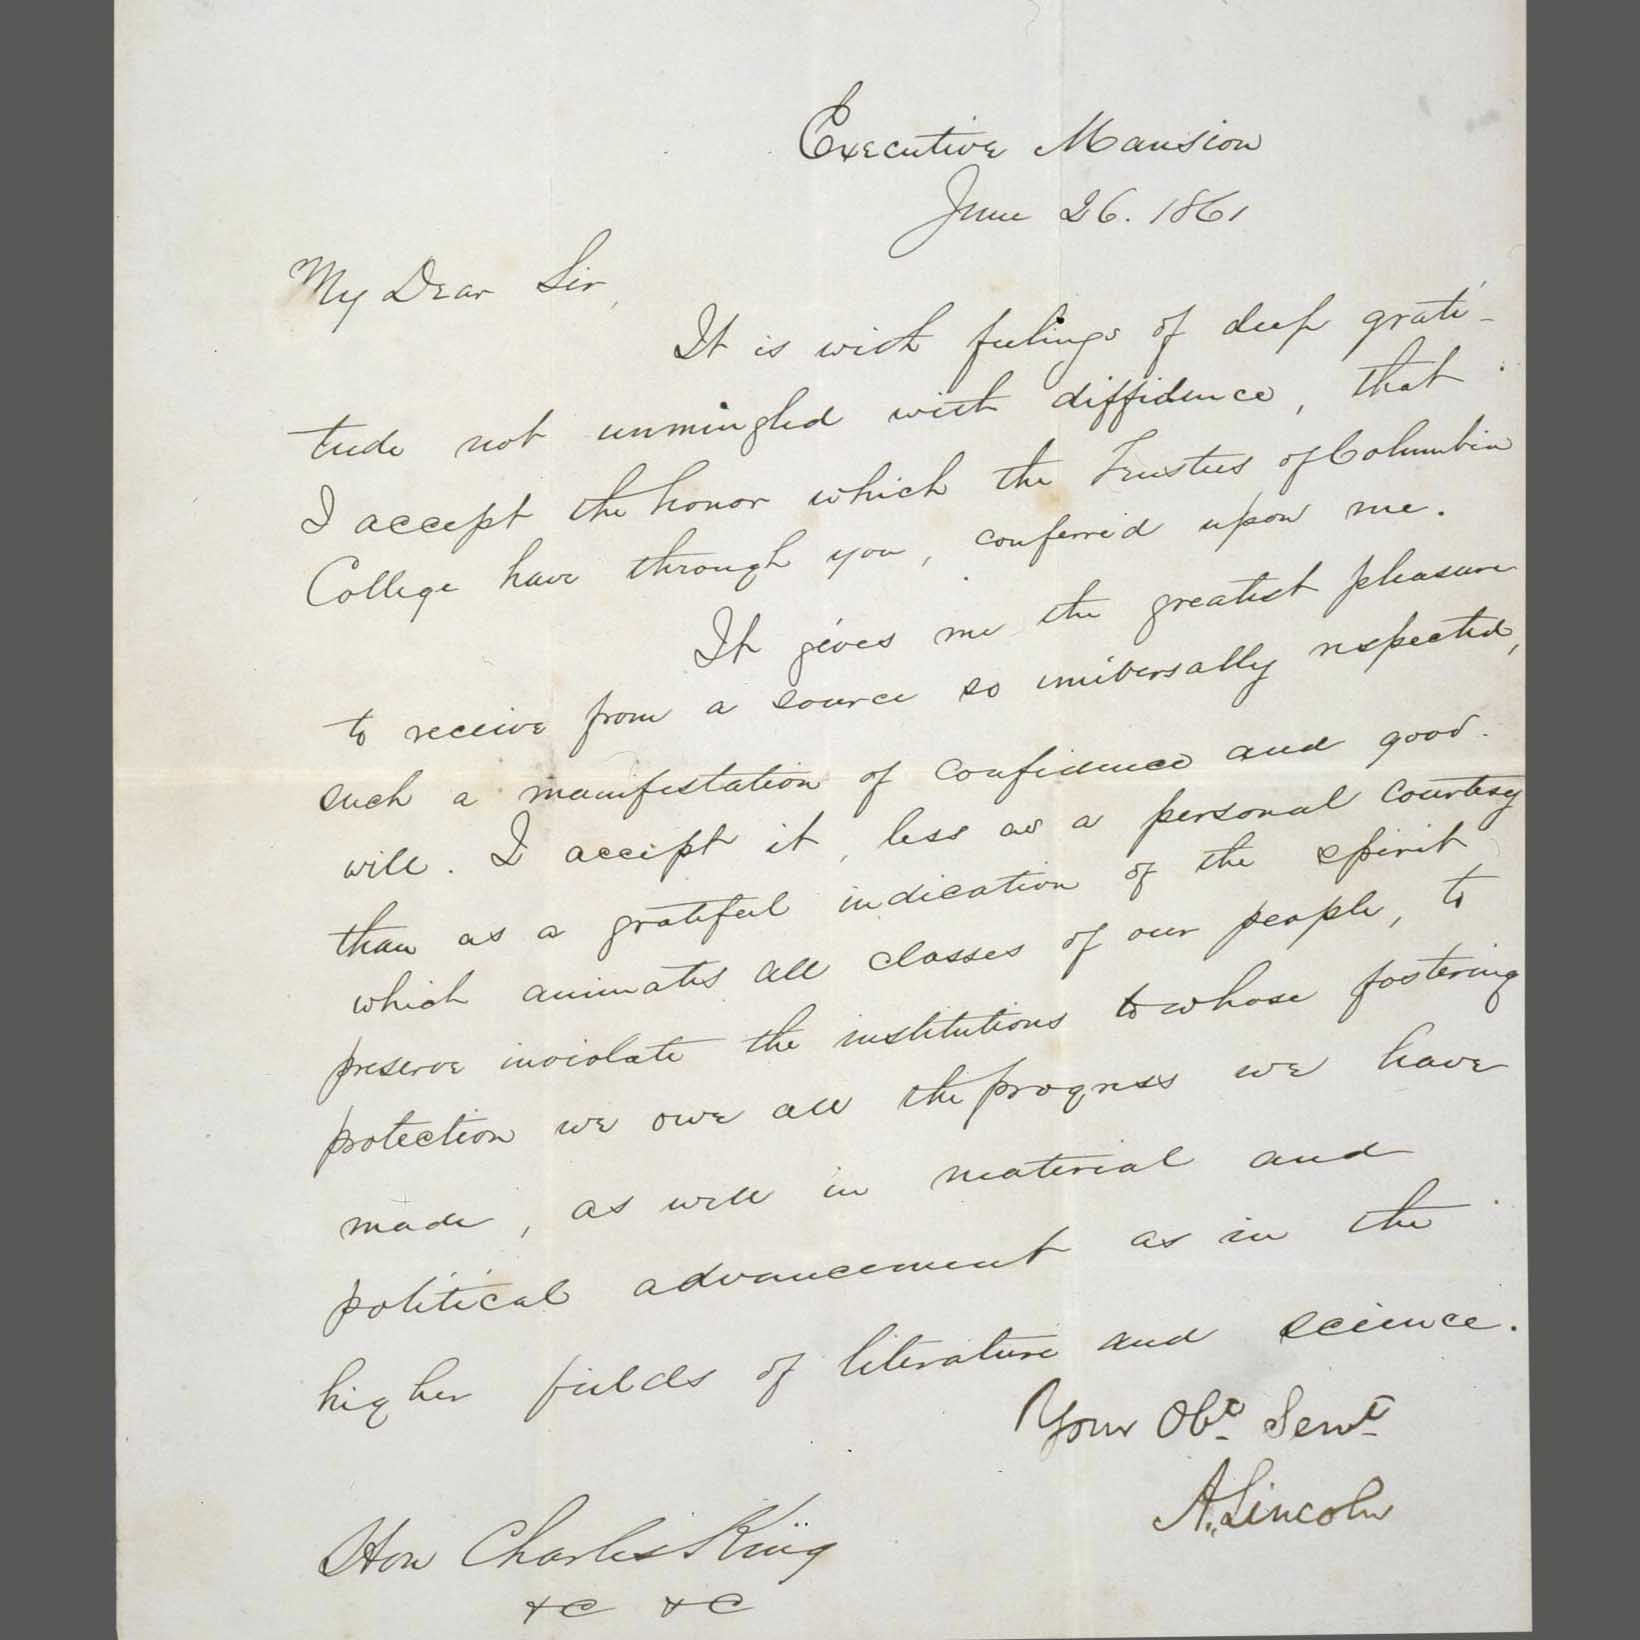 Executive Mansion
June 26. 1861
My Dear Sir,
It is with feelings of deep grati-
tude not unmingled with diffidence, that
I accept the honor which the Trustees of Columbia
College have through you, conferred upon me.
It gives me the greatest pleasure
to receive from a source so universally respected,
such a manifestation of confidence and good
will. I accept it, less as a personal courtesy
than as a grateful indication of the spirit
which animates all classes of our people, to
preserve inviolate the institutions to whose fostering
protection we owe all the progress we have
made, as well in material and
political advancement as in the
higher fields of literature and science.
Your Obt. Servt
A. Lincoln
Hon Charles King
&C &C